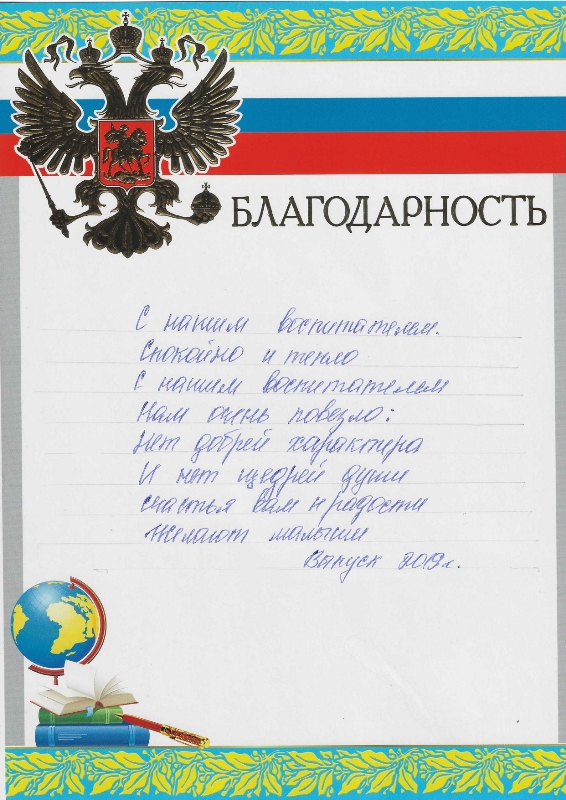 БЛАГОДАРНОСТЬ
С нашим воспитателем.
Спокойно и тепло
С нашим воспитателем
Нам очень повезло:
Нет добрей характера
И нет щедрей души
счастья вам и радости
Желают малыши
Выпуск 2019г.